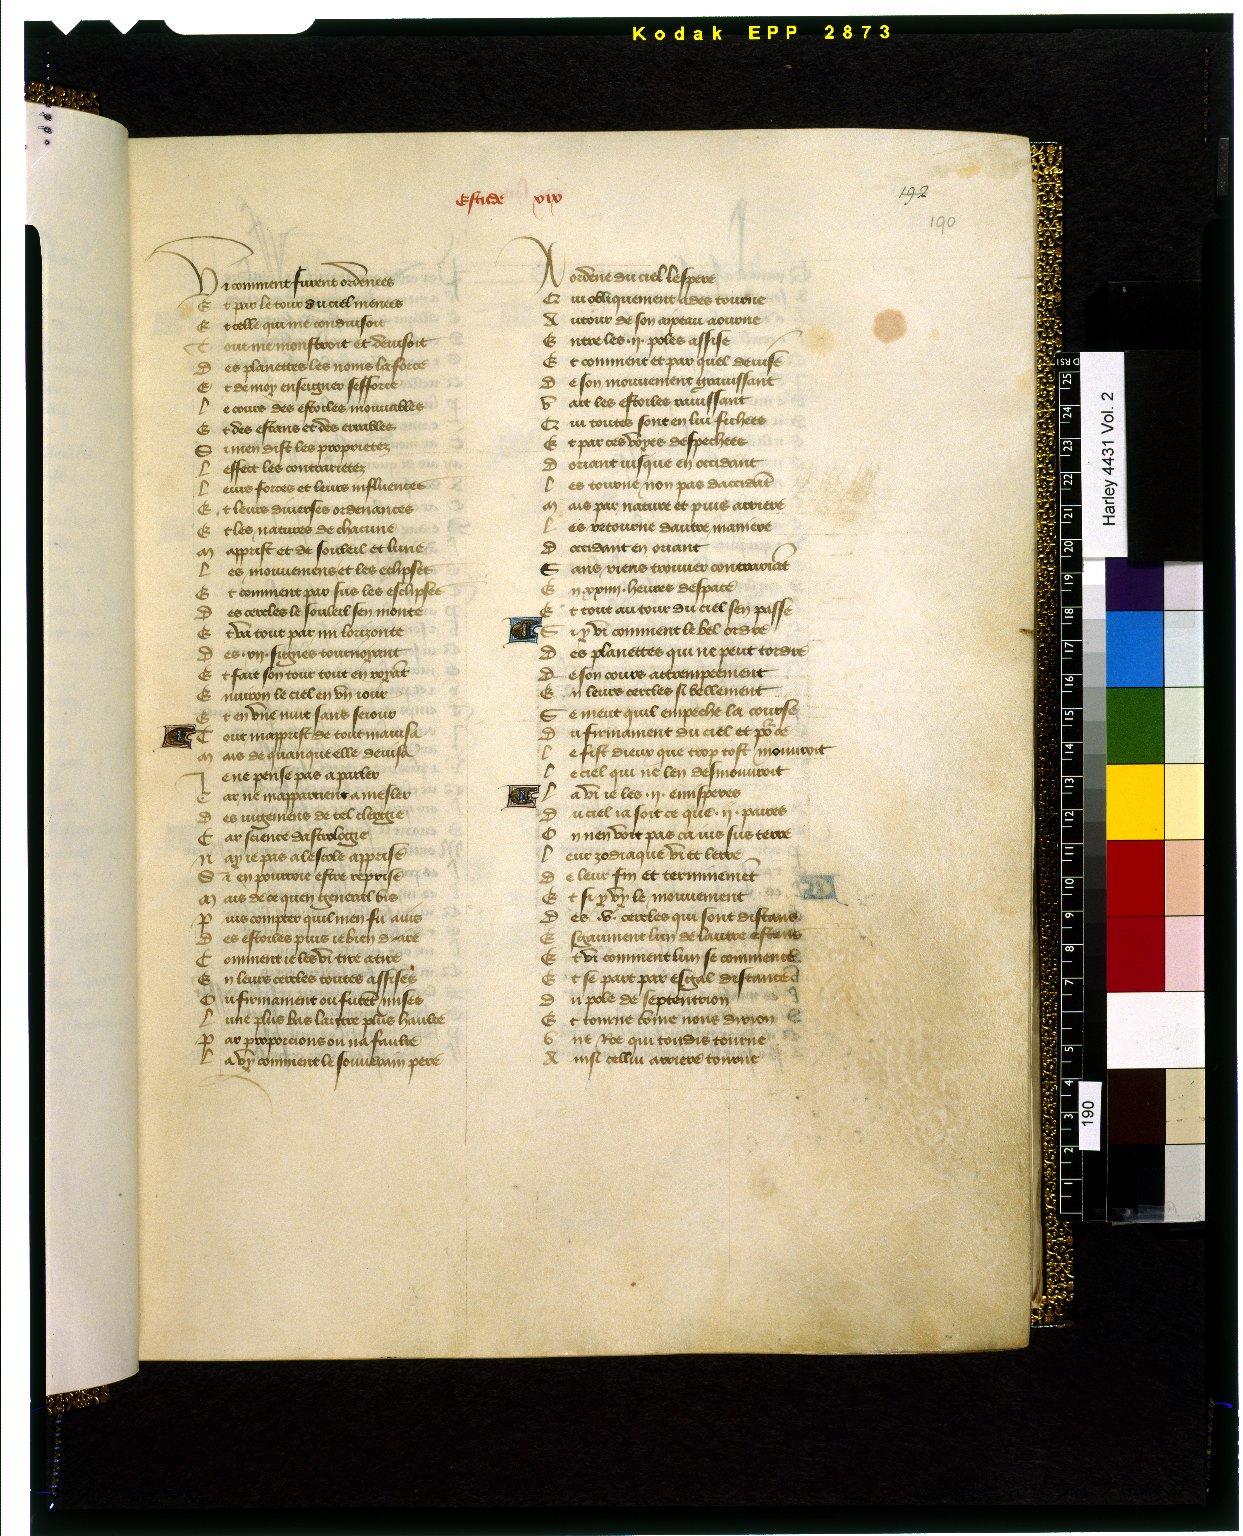 Kodak EPP 2873
192
190
Vi comment furent ordenees
Et par le tour du ciel menees
Et celle qui me conduisoit
Tout me monstroit et devisoit
Des planettes les noms la force
Et de moy enseigner sefforce
Le cours des estoilles mouvables
Et des estans et des errables
Si men dist les proprietez
Leffect les contrarietez
Leurs forces et leurs influences
Et leurs diverses ordenances
Et les natures de chacune
Mapprist et de souleil et lune
Les mouvemens et les eclipses
Et comment par sus les esclipses
Des cercles le souleil sen monte
Et va tout par mi lorizonte
Des .vii. signes tournoyant
Et fait son tour tout en royant
Environ le ciel en un jour
Et en une nuit sans sejour
Tout mapprist de tout mavisa
Mais de quanque elle devisa
Je ne pense pas a parler
Car ne mappartient a mesler
Des jugemens de tel clergie
Car science dastrologie
Nay je pas a lescole apprise
Sa en pourroie estre reprise
Mais de ce quen general bis
Puis compter quil men fu avis
Des estoilles puis je bien dire
Comment je les vi tire a tire
En leurs cercles toutes assises
Ou firmament ou furent mises
Lune plus bas lautre plus haulte
Par proporcions ou na faulte
La vy comment le souverain pere
A ordene du ciel lespere
Qui obliquement ades tourne
Autour de son aixeau aourne
Entre les .ii. poles assise
Et comment et par quel devise
De son mouvement gravissant
Vait les estoilles ravissant
Qui toutes sont en lui fichees
Et par ces voyes despechees
Doriant jusque en occidant
Les tourne non pas daccidant
Mais par nature et puis arriere
Les retourne dautre maniere
Doccidant en oriant
Sans riens trouver contrariant
En xxiiii. heures despace
Et tout autour du ciel sen passe
Si y vi comment le bel ordre
Des planettes qui ne peut tordre
De son cours attrempeement
En leurs cercles si bellement
Se meut quil empeche la course
Du firmament du ciel et pour ce
Le fist dieux que trop tost mouvroit
Le ciel qui ne len desmouvroit
La vi je les .ii. emisperes
Du ciel ja soit ce que .ii. paires
On nen voit pas ca jus sus terre
Leur zodiaque vi et lerre
De leur fin et terminement
Et si y vy le mouvement
Des .v. cercles qui sont distans
Esgaument lun de lautre estans
Et vi comment lun se commence
Et se part par esgal distance
Du pole de septentrion
Et tourne comme nous dirion
Une roe qui toudis tourne
Ainsi cellui arriere tourne
Harley 4431 Vol. 2
190
25
24
23
22
21
20
19
18
17
16
15
14
13
12
11
10
9
8
7
5
4
3
2
1